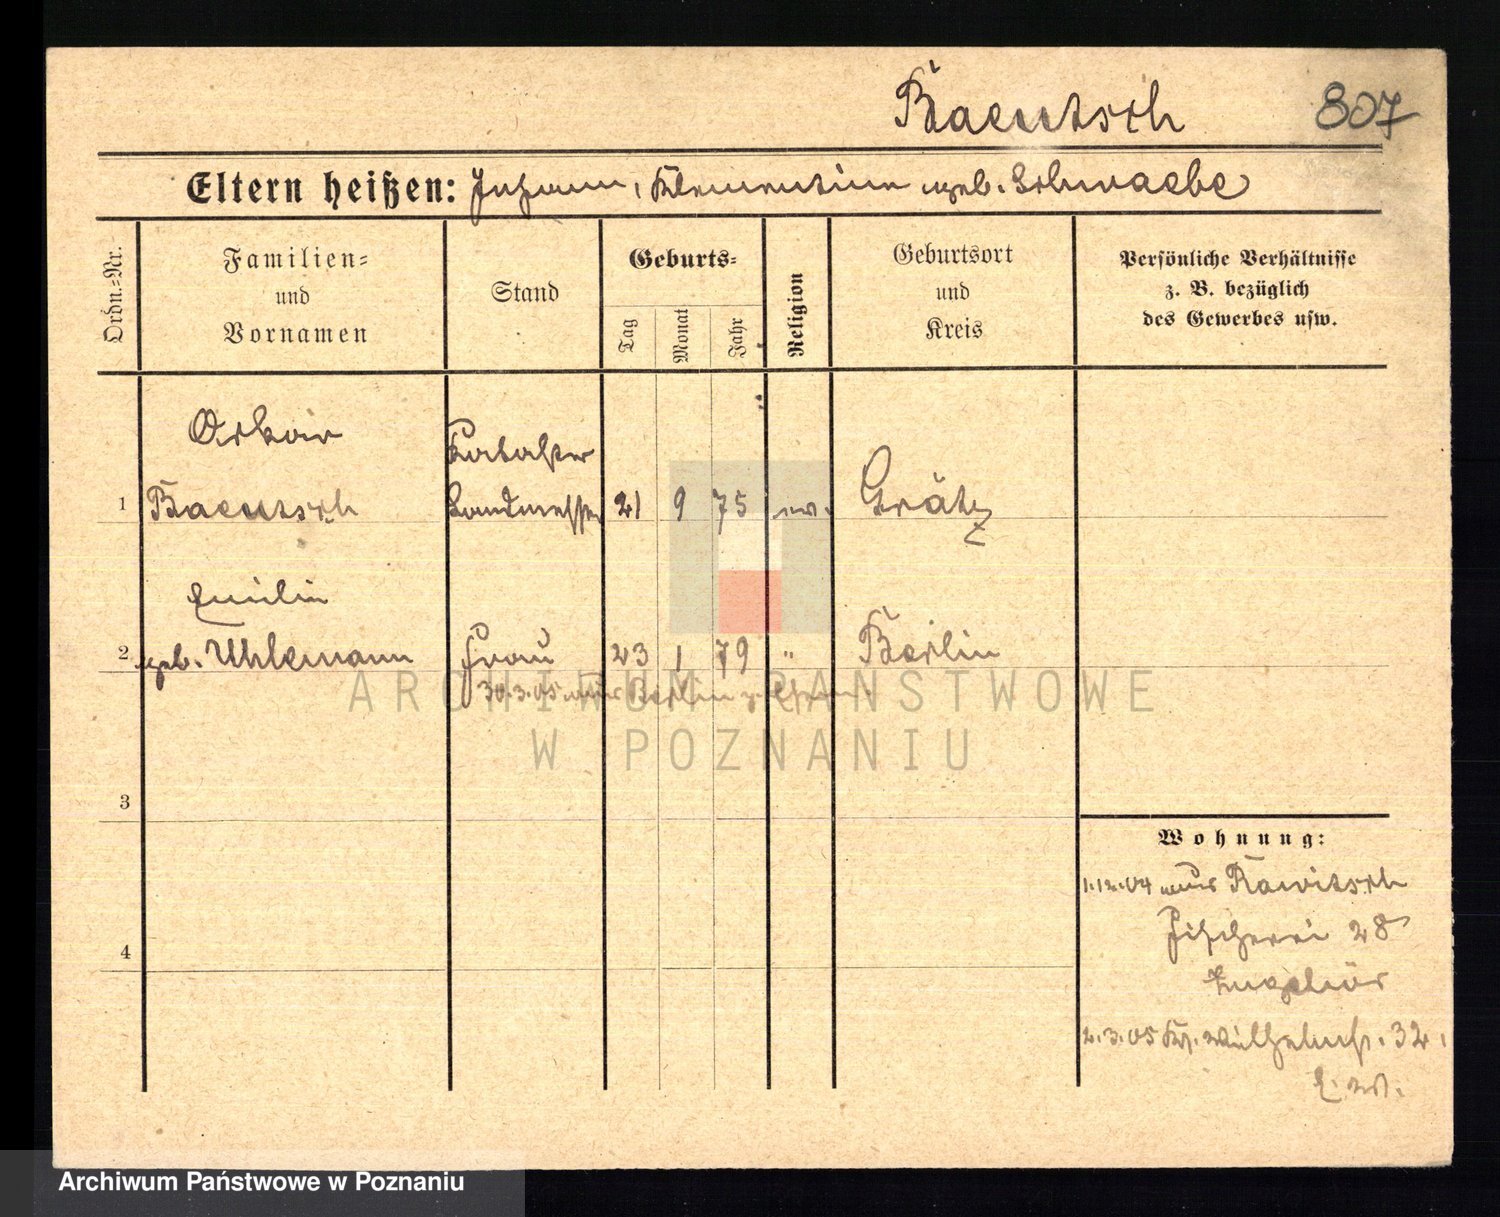 Baeutsch 807
Eltern heißen: Johann, Klementine geb. Schwabe
Ordn.-Nr.
Familien-
und
Vornamen
Stand
Geburts-
Tag
Monat
Jahr
Religion
Geburtsort
und
Kreis
Persönliche Verhältnisse
z. B. bezüglich
des Gewerbes usw.
Oskar
Kataster
1 Baeutsch Landmesser 21 9 75 ev. Grätz
Emilie
2 geb. Uhlemann Frau 23 1 79 " Berlin
30.3.05 aus Berlin z. Ehem.
ARCHIWUM PAŃSTWOWE
W POZNANIU
3
4
Wohnung:
1.12.04 aus Rawitsch
Fischerei 28
2.3.05 Kr. Wilhelmstr. 32.
Archiwum Państwowe w Poznaniu